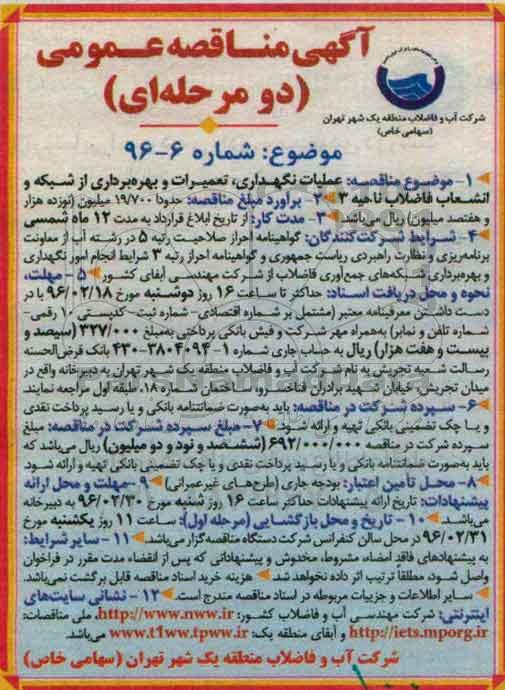 آگهی مناقصه عمومی
(دو مرحله‌ای)
شرکت آب و فاضلاب منطقه یک شهر تهران
(سهامی خاص)
موضوع: شماره ۶-۹۶
۱- موضوع مناقصه: عملیات نگهداری، تعمیرات و بهره‌برداری از شبکه و
انشعاب فاضلاب ناحیه ۳ ۲- برآورد مبلغ مناقصه: حدودا ۱۹/۷۰۰ میلیون (نوزده هزار
و هفتصد میلیون) ریال می‌باشد. ۳- مدت کار: از تاریخ ابلاغ قرارداد به مدت ۱۲ ماه شمسی
۴- شرایط شرکت‌کنندگان: گواهینامه احراز صلاحیت رتبه ۵ در رشته آب از معاونت
برنامه‌ریزی و نظارت راهبردی ریاست جمهوری و گواهینامه احراز رتبه ۳ شرایط انجام امور نگهداری
و بهره‌برداری شبکه‌های جمع‌آوری فاضلاب از شرکت مهندسی آبفای کشور ۵- مهلت،
نحوه و محل دریافت اسناد: حداکثر تا ساعت ۱۶ روز دوشنبه مورخ ۹۶/۰۲/۱۸ با در
دست داشتن معرفینامه معتبر (مشتمل بر شماره اقتصادی- شماره ثبت- کدپستی ۱۰ رقمی-
شماره تلفن و نمابر) به‌همراه مهر شرکت و فیش بانکی پرداختی به‌مبلغ ۳۲۷/۰۰۰ (سیصد و
بیست و هفت هزار) ریال به حساب جاری شماره ۱-۳۸۰۴۰۹۴-۴۳۰ بانک قرض‌الحسنه
رسالت شعبه تجریش به نام شرکت آب و فاضلاب منطقه یک شهر تهران به دبیرخانه واقع در
میدان تجریش، خیابان شهید برادران فناخسرو، ساختمان شماره ۱۸، طبقه اول مراجعه نمایند.
۶- سپرده شرکت در مناقصه: باید به‌صورت ضمانتنامه بانکی و یا رسید پرداخت نقدی
و یا چک تضمینی بانکی تهیه و ارائه شود. ۷- مبلغ سپرده شرکت در مناقصه: مبلغ
سپرده شرکت در مناقصه ۶۹۲/۰۰۰/۰۰۰ (ششصد و نود و دو میلیون) ریال می‌باشد که
باید به‌صورت ضمانتنامه بانکی و یا رسید پرداخت نقدی و یا چک تضمینی بانکی تهیه و ارائه شود.
۸- محل تأمین اعتبار: بودجه جاری (طرح‌های غیرعمرانی) ۹- مهلت و محل ارائه
پیشنهادات: تاریخ ارائه پیشنهادات حداکثر ساعت ۱۶ روز شنبه مورخ ۹۶/۰۲/۳۰ به دبیرخانه
می‌باشد. ۱۰- تاریخ و محل بازگشایی (مرحله اول): ساعت ۱۱ روز یکشنبه مورخ
۹۶/۰۲/۳۱ در محل سالن کنفرانس شرکت دستگاه مناقصه‌گزار می‌باشد. ۱۱- سایر شرایط:
به پیشنهادهای فاقد امضاء، مشروط، مخدوش و پیشنهاداتی که پس از انقضاء مدت مقرر در فراخوان
واصل شود، مطلقاً ترتیب اثر داده نخواهد شد. هزینه خرید اسناد مناقصه قابل برگشت نمی‌باشد.
سایر اطلاعات و جزییات مربوطه در اسناد مناقصه مندرج است. ۱۲- نشانی سایت‌های
اینترنتی: شرکت مهندسی آب و فاضلاب کشور: http://www.nww.ir، ملی مناقصات:
http://iets.mporg.ir و آبفای منطقه یک: www.t1ww.tpww.ir می‌باشد.
شرکت آب و فاضلاب منطقه یک شهر تهران (سهامی خاص)